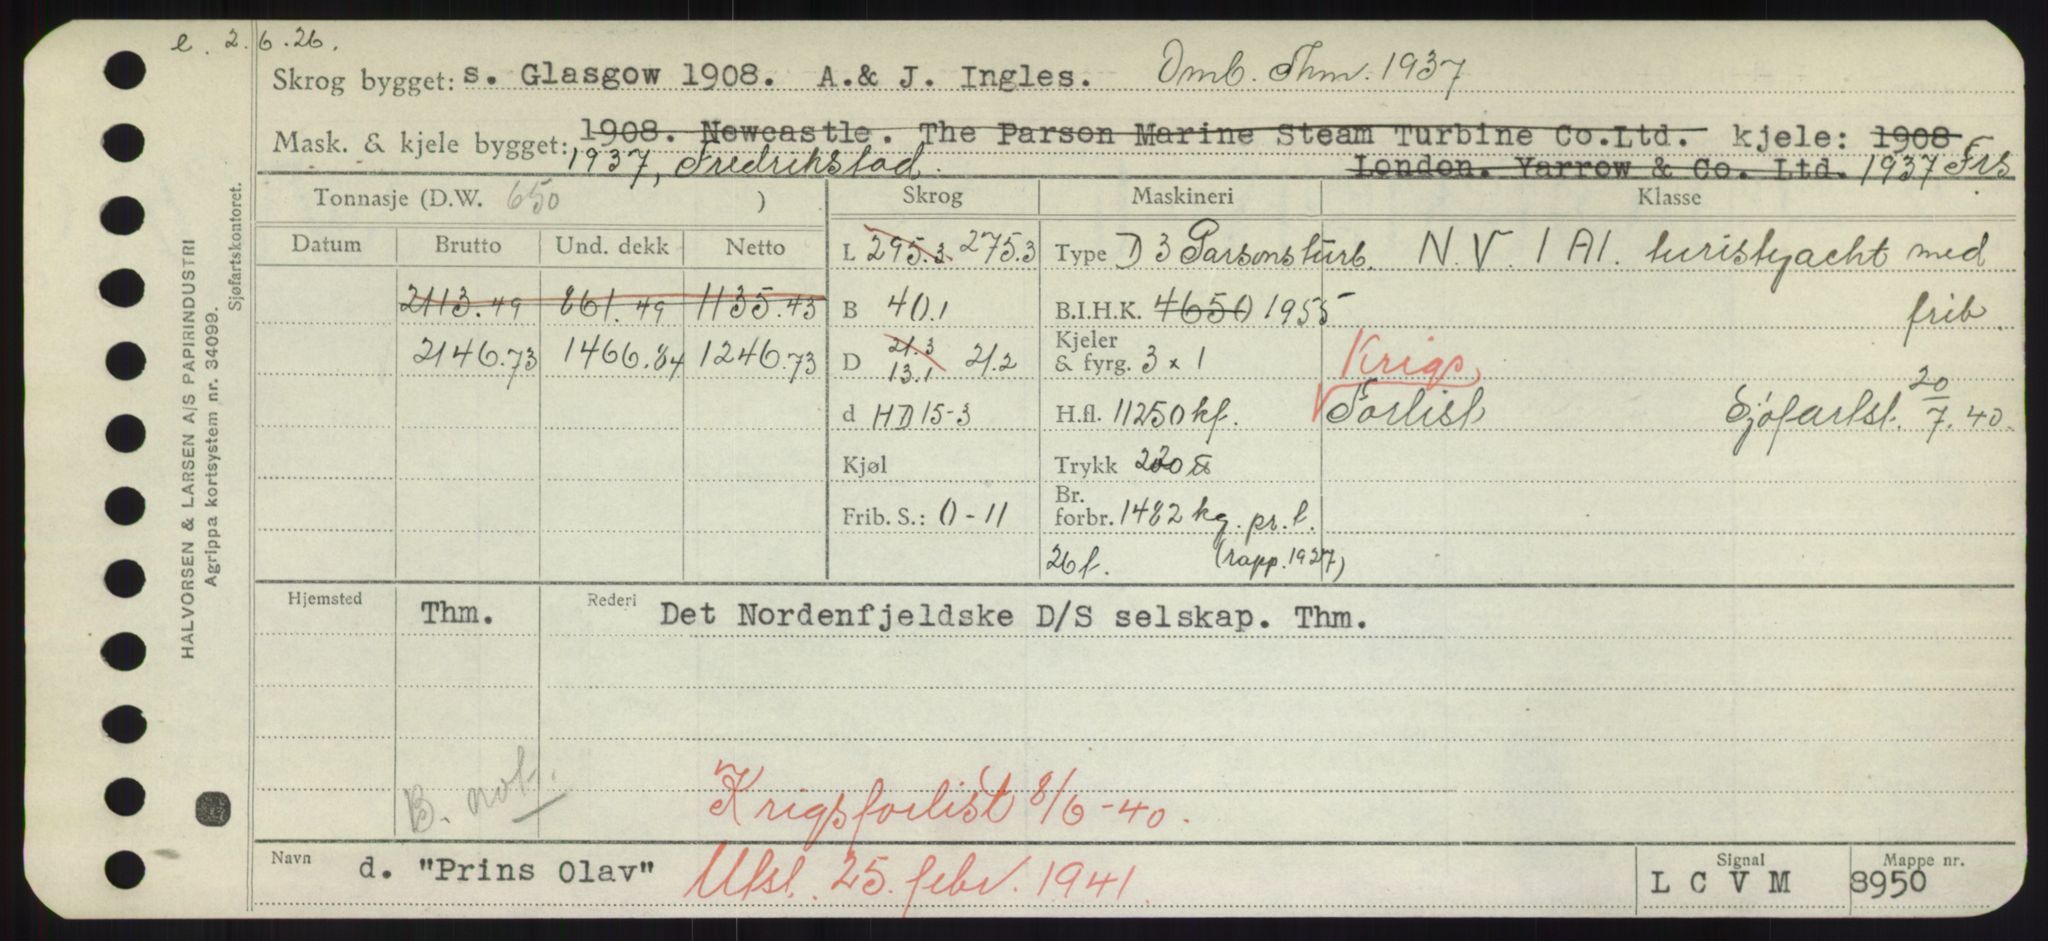 e. 2.6.26.
Skrog bygget: s. Glasgow 1908. A.& J. Ingles. Omb. Thm. 1937
Mask. & kjele bygget: 1908. Newcastle. The Parson Marine Steam Turbine Co.Ltd. kjele: 1908
1937, Fredrikstad. London. Yarrow & Co. Ltd. 1937 Frs
Tonnasje (D.W. 650 ) Skrog Maskineri Klasse
Datum Brutto Und. dekk Netto L 295.3 275.3 Type D 3 Parsons turb. N.V. 1 A1. turistyacht med
2113.49 861.49 1135.43 B 40.1 B.I.H.K. 4650 1955 frib.
2146.73 1466.84 1246.73 D 21.3 13.1 21.2 Kjeler & fyrg. 3 x 1 Krigs
d HD 15-3 H.fl. 11250 kf. Forlist Sjøfartst. 20/7.40.
Kjøl Trykk 220
Frib. S.: 0-11 Br. forbr. 1482 kg. pr. t.
26 f. (rapp. 1927)
Hjemsted Thm. Rederi Det Nordenfjeldske D/S selskap. Thm.
B. not.
Krigsforlist 8/6-40.
Navn d. "Prins Olav" Utsl. 25. febr. 1941. Signal L C V M Mappe nr. 8950
HALVORSEN & LARSEN A/S PAPIRINDUSTRI
Agrippa kortsystem nr. 34099.
Sjøfartskontoret.